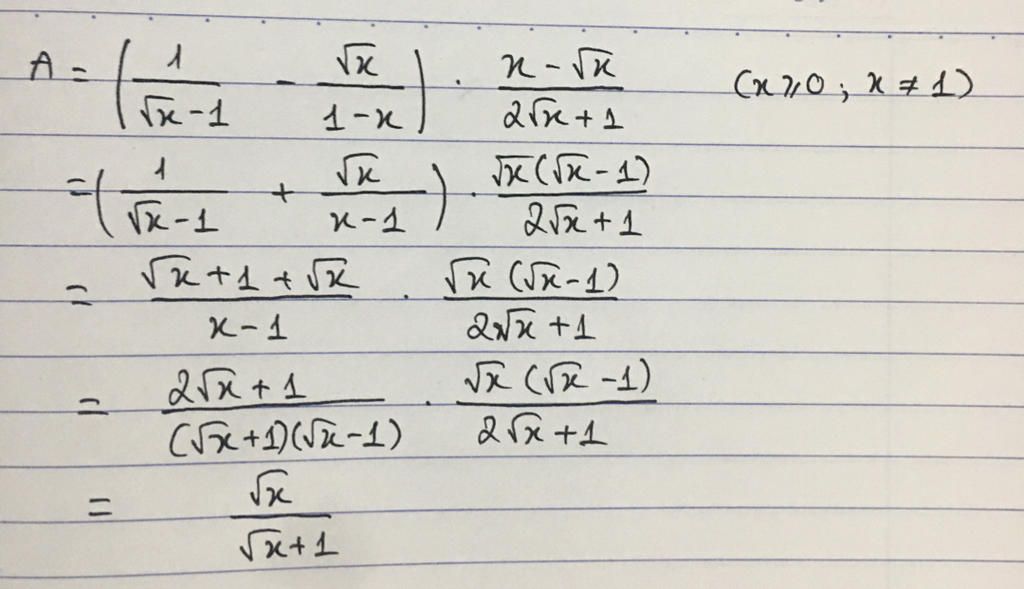 A = (1/(√x-1) - √x/(1-x)) . (x-√x)/(2√x+1) (x⩾0; x≠1)
= (1/(√x-1) + √x/(x-1)) . √x(√x-1)/(2√x+1)
= (√x+1+√x)/(x-1) . √x(√x-1)/(2√x+1)
= (2√x+1)/((√x+1)(√x-1)) . √x(√x-1)/(2√x+1)
= √x/(√x+1)